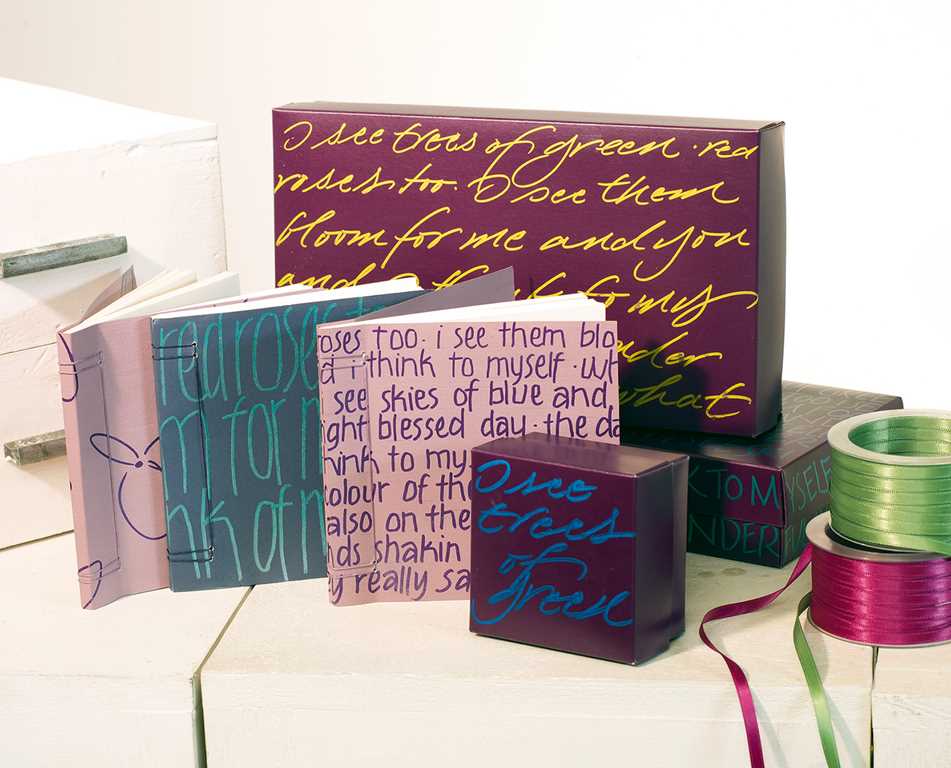 I see trees of green · red
roses too. I see them
bloom for me and you
and to my
what
red roses
m for m
nk of m
oses too. i see them blo
d i think to myself. wh
see skies of blue and
ight blessed day. the da
hink to my
olour of th
also on the
nds shakin
y really sa
I see
trees
of
green
K TO MYSELF
NDERF